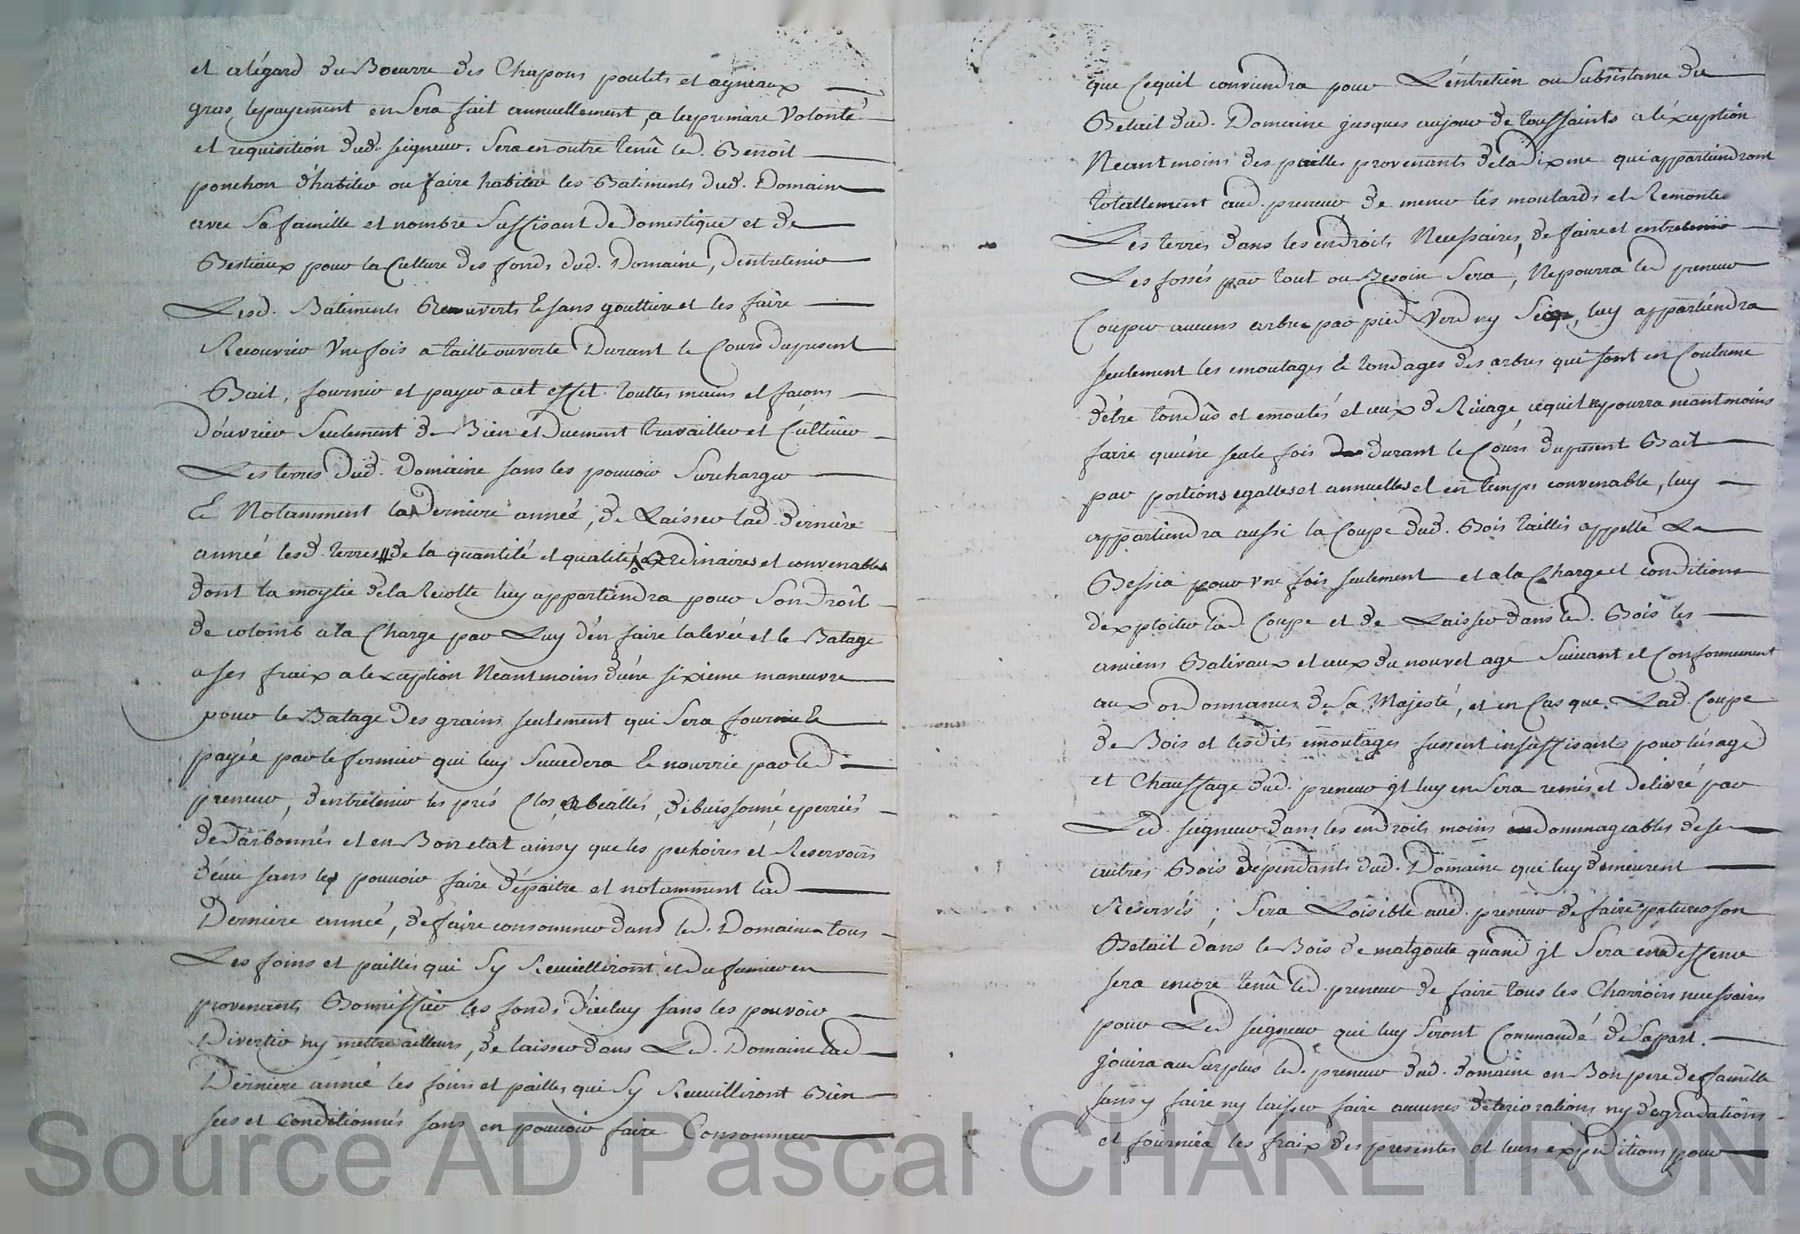 et alégard du Boeurre des Chapons poulets et agneaux
gras, lepayement en Sera fait annuellement, a la premiere Volonté
et requisition dud. seigneur. Sera en outre tenû led. Benoit
ponchon d'habiter ou faire habiter les Batiments dud. Domaine
avec Sa famille et nombre Suffisant de Domestiques et de
Bestiaux pour la Culture des fonds dud. Domaine, d'entretenir
Lesd. Batiments Recouverts & sans gouttiere et les faire
Recouvrir Une fois a taille ouverte Durant le Cours dupresent
Bail, fournir et payer a cet effet touttes mains et facons
D'ouvrier Seulement de Bien et Duement travailler et Cultiver
Les terres dud. Domaine sans les pouvoir Surcharger
& Notamment la Derniere année, de Laisser lad. derniere
année lesd. terres de la quantité et qualité ordinaires et convenables
dont la moytié de la Recolte luy appartiendra pour Son Droit
de colomb a la Charge par Luy d'en faire la levée et le Batage
a ses fraix a lexception Neantmoins d'une sixieme maneuvre
pour le Batage Des grains seulement qui Sera fournie &
payée par le fermier qui luy Succedera & nourrie par led
preneur, d'entretenir les prés Clos, abeallés, débuissonné, eperriés
de Tarbonnés et en Bon etat ainsy que les pechoires et Reservoirs
d'eau sans les pouvoir faire dépaitre et notamment lad
Derniere année, de faire consommer dans led. Domaine tous
Les foins et pailles qui Sy Recueilliront et du fumier en
provenants Bonniffier les fonds d'iceluy sans les pouvoir
Divertir ny mettre ailleurs, de laisser dans Led. Domaine lad
Derniere année les foins et pailles qui Sy Recueilliront Bien
secs et Conditionnés sans en pouvoir faire Consommer
que Cequil conviendra pour L'entretien ou Subsistance du
Betail dud. Domaine jusques aujour de toussaints a léxception
Neantmoins des pailles provenants de la Dixme qui appartiendront
totallement aud. preneur de mener les moutards et Remonter
Les terres dans les endroits Necessaires, de faire et entretenir
Les fossés par tout ou Besoin Sera, Ne pourra led preneur
Couper aucuns arbres par pied Verd ny Secq, luy appartiendra
seulement les emoutages & tondages des arbres qui sont en Coutume
d'être tondûs et emoutés et ceux de Rivage cequil ny pourra neantmoins
faire qu'une seule fois durant le Cours dupresent Bail
par portions egalles et annuelles et en temps convenable, luy
appartiendra aussi la Coupe dud. Bois taillis appellé La
Bessia pour Une fois seulement et a la Charge et conditions
d'exploiter lad. Coupe et de Laisser dans led. Bois les
anciens Balivaux et ceux du nouvel age Suivant et Conformement
aux ordonnances de Sa Majesté, et en Cas que Lad. Coupe
de Bois et lesdits emoutages fussent insuffisants pour l'usage
et Chauffage dud. preneur jl luy en Sera remis et delivré par
Led. seigneur dans les endroits moins dommageables de se
autres Bois dépendants dud. Domaine qui luy demeurent
Reservés; Sera Loisible aud. preneur de faire paturer son
Betail dans le Bois de matgoute quand jl Sera en deffence
sera encore tenû led. preneur de faire tous les Charroirs necessaires
pour Led seigneur qui luy Seront Commandé de Sa part.
Joüira au Surplus led. preneur dud. domaine en Bon pere de famille
sans y faire ny laisser faire aucunes déteriorations ny dégradations
et fournira les fraix des presentes et leurs expeditions pour
Source AD Pascal CHAREYRON